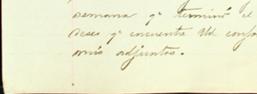 semana q^e terminó el
deses q^e encuentre Vd. confo
mis adjuntos.